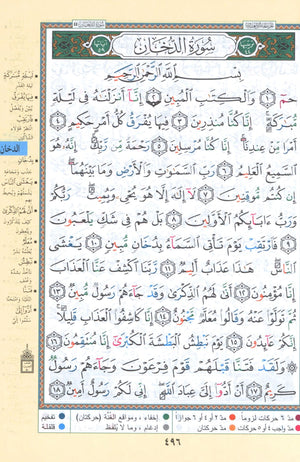 سُورَةُ الدُّخَانِ
بِسْمِ اللَّهِ الرَّحْمَٰنِ الرَّحِيمِ
حمٓ ١ وَالْكِتَٰبِ الْمُبِينِ ٢ إِنَّآ أَنزَلْنَٰهُ فِى لَيْلَةٍ
مُّبَٰرَكَةٍ إِنَّا كُنَّا مُنذِرِينَ ٣ فِيهَا يُفْرَقُ كُلُّ أَمْرٍ حَكِيمٍ ٤
أَمْرًا مِّنْ عِندِنَآ إِنَّا كُنَّا مُرْسِلِينَ ٥ رَحْمَةً مِّن رَّبِّكَ إِنَّهُۥ هُوَ
السَّمِيعُ الْعَلِيمُ ٦ رَبِّ السَّمَٰوَٰتِ وَالْأَرْضِ وَمَا بَيْنَهُمَآ
إِن كُنتُم مُّوقِنِينَ ٧ لَآ إِلَٰهَ إِلَّا هُوَ يُحْىِۦ وَيُمِيتُ رَبُّكُمْ
وَرَبُّ ءَابَآئِكُمُ الْأَوَّلِينَ ٨ بَلْ هُمْ فِى شَكٍّ يَلْعَبُونَ
٩ فَارْتَقِبْ يَوْمَ تَأْتِى السَّمَآءُ بِدُخَانٍ مُّبِينٍ ١٠ يَغْشَى
النَّاسَ هَٰذَا عَذَابٌ أَلِيمٌ ١١ رَّبَّنَا اكْشِفْ عَنَّا الْعَذَابَ
إِنَّا مُؤْمِنُونَ ١٢ أَنَّىٰ لَهُمُ الذِّكْرَىٰ وَقَدْ جَآءَهُمْ رَسُولٌ مُّبِينٌ ١٣
ثُمَّ تَوَلَّوْا۟ عَنْهُ وَقَالُوا۟ مُعَلَّمٌ مَّجْنُونٌ ١٤ إِنَّا كَاشِفُوا۟ الْعَذَابِ قَلِيلًا
إِنَّكُمْ عَآئِدُونَ ١٥ يَوْمَ نَبْطِشُ الْبَطْشَةَ الْكُبْرَىٰٓ إِنَّا مُنتَقِمُونَ ١٦
وَلَقَدْ فَتَنَّا قَبْلَهُمْ قَوْمَ فِرْعَوْنَ وَجَآءَهُمْ رَسُولٌ
كَرِيمٌ ١٧ أَنْ أَدُّوٓا۟ إِلَىَّ عِبَادَ اللَّهِ إِنِّى لَكُمْ رَسُولٌ أَمِينٌ ١٨
الدخان
مدّ ٦ حركات لزوماً مدّ ٢ أو ٤ أو ٦ جوازاً إخفاء، ومواقع الغُنَّة (حركتان) تفخيم
مدّ واجب ٤ أو ٥ حركات مدّ حركتان إدغام، وما لا يُلفَظ قلقلة
٤٩٦